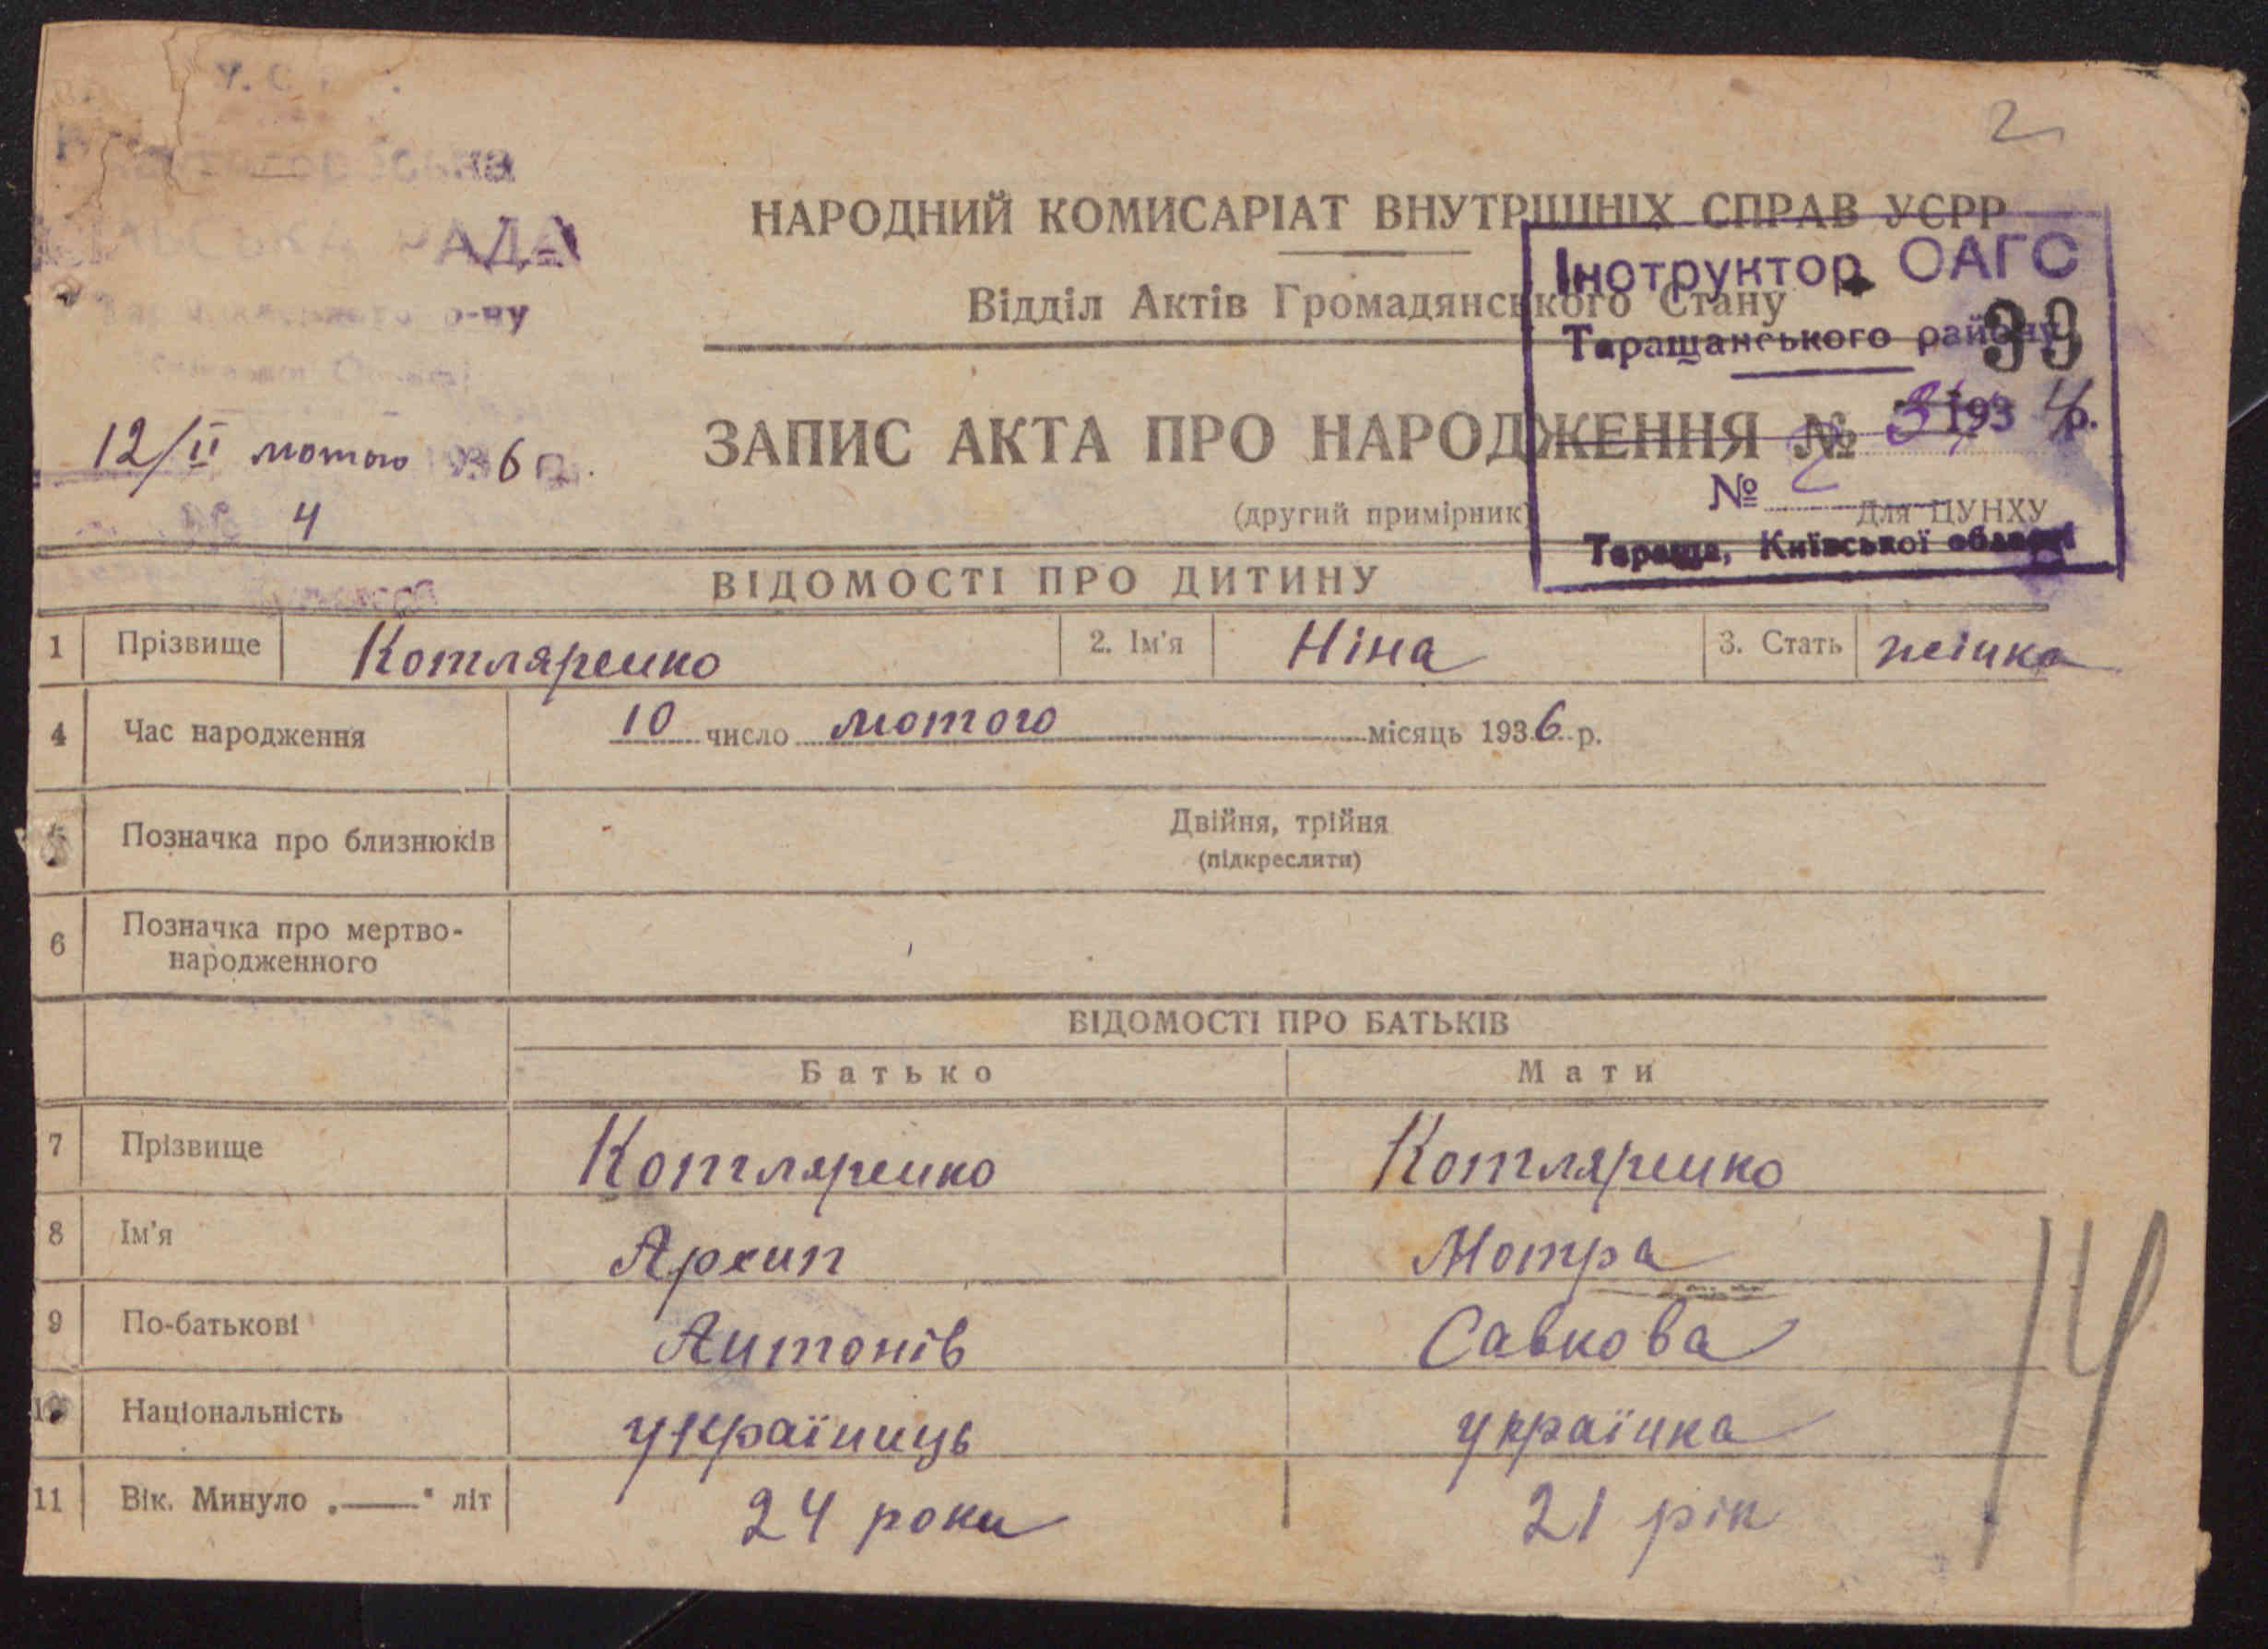 2
РАДА
р-ну
12/II лютого 6 р.
4
НАРОДНИЙ КОМИСАРІАТ ВНУТРІШНІХ СПРАВ УСРР
Відділ Актів Громадянського Стану
ЗАПИС АКТА ПРО НАРОДЖЕННЯ №
(другий примірник)
Для ЦУНХУ
Інструктор ОАГС
Таращанського району
39
193 р.
№ 2
Тараща, Київської області
ВІДОМОСТІ ПРО ДИТИНУ
1 Прізвище Котляренко 2. Ім'я Ніна 3. Стать жінка
4 Час народження 10 число лютого місяць 1936 р.
5 Позначка про близнюків Двійня, трійня
(підкреслити)
6 Позначка про мертво-
народженного
ВІДОМОСТІ ПРО БАТЬКІВ
Батько Мати
7 Прізвище Котляренко Котляренко
8 Ім'я Архип Мотра
9 По-батькові Антонів Савкова
10 Національність українець українка
11 Вік. Минуло „—" літ 24 роки 21 рік
14